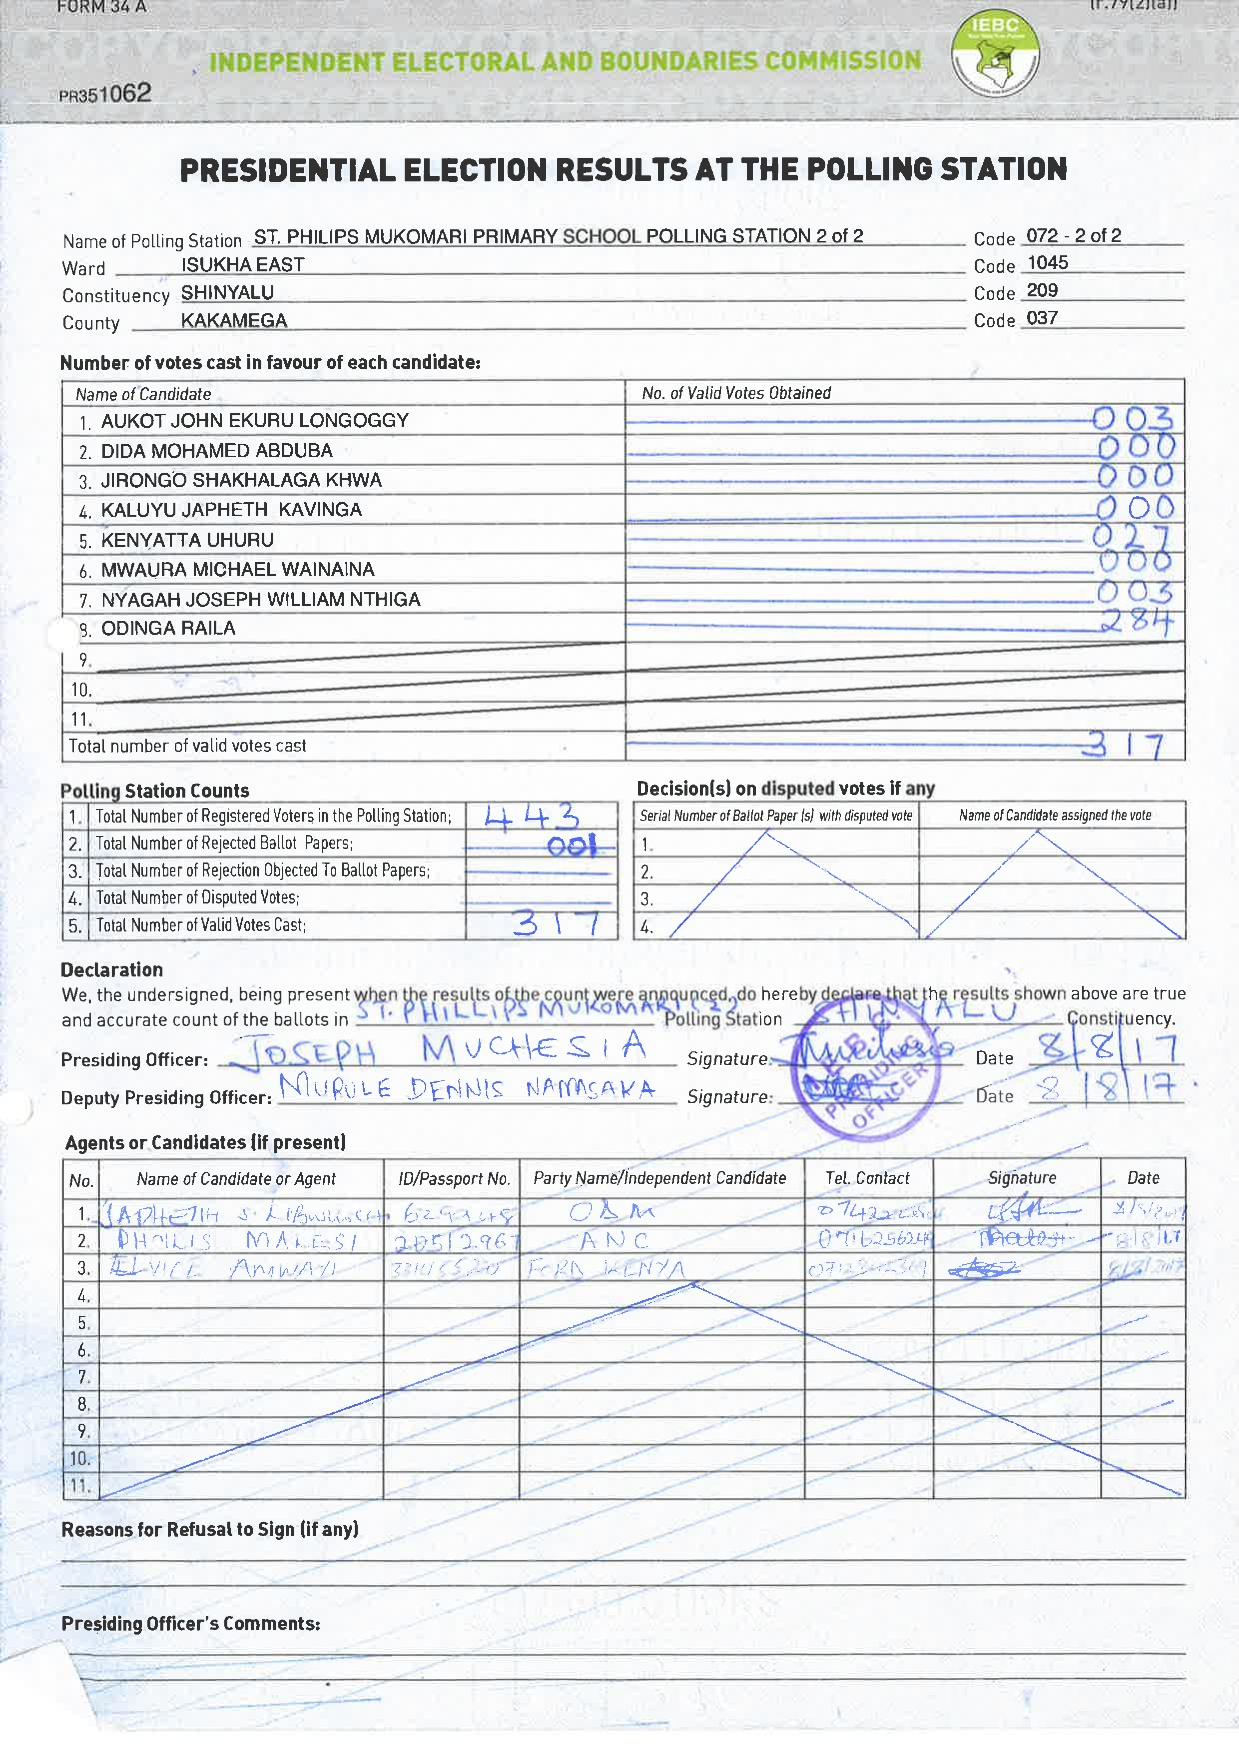 FORM 34 A
(r.79(2)(a))
IEBC
INDEPENDENT ELECTORAL AND BOUNDARIES COMMISSION
PR351062
PRESIDENTIAL ELECTION RESULTS AT THE POLLING STATION
Name of Polling Station ST. PHILIPS MUKOMARI PRIMARY SCHOOL POLLING STATION 2 of 2 Code 072 - 2 of 2
Ward ISUKHA EAST Code 1045
Constituency SHINYALU Code 209
County KAKAMEGA Code 037
Number of votes cast in favour of each candidate:
Name of Candidate No. of Valid Votes Obtained
1. AUKOT JOHN EKURU LONGOGGY 003
2. DIDA MOHAMED ABDUBA 000
3. JIRONGO SHAKHALAGA KHWA 000
4. KALUYU JAPHETH KAVINGA 000
5. KENYATTA UHURU 027
6. MWAURA MICHAEL WAINAINA 000
7. NYAGAH JOSEPH WILLIAM NTHIGA 003
8. ODINGA RAILA 284
9.
10.
11.
Total number of valid votes cast 317
Polling Station Counts
1. Total Number of Registered Voters in the Polling Station; 443
2. Total Number of Rejected Ballot Papers; 001
3. Total Number of Rejection Objected To Ballot Papers;
4. Total Number of Disputed Votes;
5. Total Number of Valid Votes Cast; 317
Decision(s) on disputed votes if any
Serial Number of Ballot Paper (s) with disputed vote Name of Candidate assigned the vote
1.
2.
3.
4.
Declaration
We, the undersigned, being present when the results of the count were announced, do hereby declare that the results shown above are true
and accurate count of the ballots in ST. PHILLIPS MUKOMARI Polling Station SHINYALU Constituency.
Presiding Officer: JOSEPH MUCHESIA Signature: Date 8/8/17
Deputy Presiding Officer: DENNIS NAMASAKA Signature: Date 8/8/17
PRESIDING OFFICER
Agents or Candidates (if present)
No. Name of Candidate or Agent ID/Passport No. Party Name/Independent Candidate Tel. Contact Signature Date
1. JAPHETH S. ODM
2. MALESI 20512967 ANC 8/8/17
3. ELVICE AMWAYI FORD KENYA
4.
5.
6.
7.
8.
9.
10.
11.
Reasons for Refusal to Sign (if any)
Presiding Officer's Comments: